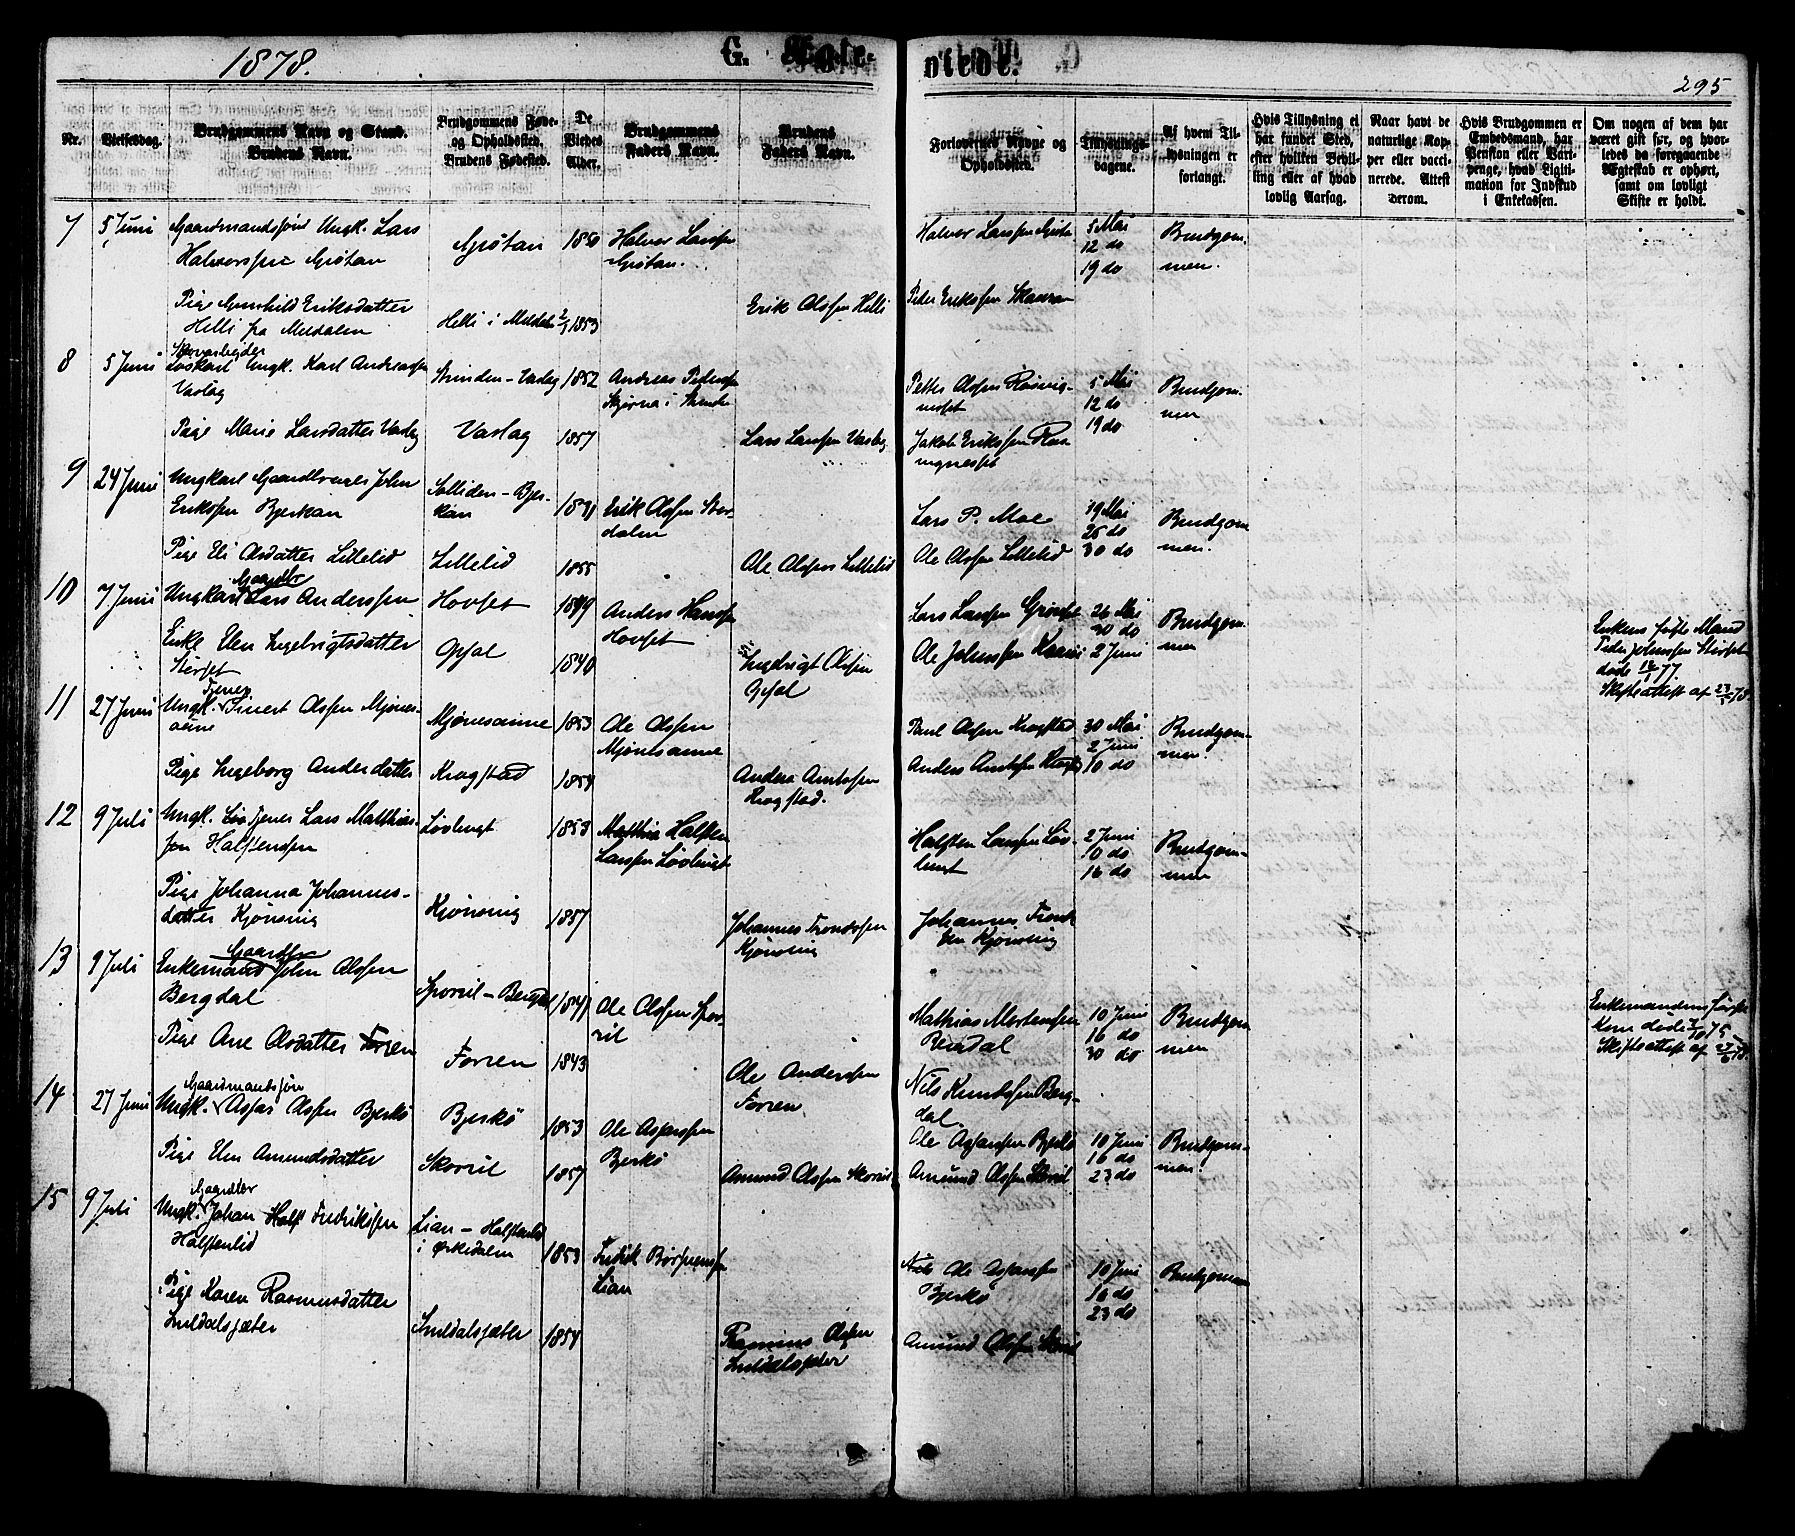 1878.
G. Ægte-
viede.
295
Nr.
Vielsesdag.
Brudgommens Navn og Stand.
Brudens Navn.
Brudgommens Føde-
og Opholdssted.
Brudens Fødested.
De
Viedes
Alder.
Brudgommens
Faders Navn.
Brudens
Faders Navn.
Forlovernes Navne og
Opholdssted.
Tillysnings-
dagene.
Af hvem Til-
lysningen er
forlangt.
Hvis Tillysning ei
har fundet Sted,
efter hvilken Bevil-
ling eller af hvad
lovlig Aarsag.
Naar havt de
naturlige Kop-
per eller vacci-
nerede. Attest
derom.
Hvis Brudgommen er
Embedsmand, har
Pension eller Vart-
penge, hvad Ligiti-
mation for Indskud
i Enkekassen.
Om nogen af dem har
været gift før, og hvor-
ledes da foregaaende
Ægteskab er ophørt,
samt om lovligt
Skifte er holdt.
7
5 Juni
Gaardmandssøn Ungk. Lars
Halvorssen Gjøtan
Gjøtan
1850
Halvor Larssen
Gjøtan.
Halvor Larssen
5 Mai
12 do
19 do
Brudgom-
men.
Pige Gunhild Eriksdatter
Helli fra Meldalen
Helli i
1853
Erik Olssen Helli
Peder Erikssen
8
5 Juni
Skovarbeider
Løskarl Ungk. Karl Andreassen
Vaslag
Strinden - Vaslag
1852
Andreas Pederssen
i Strinde
Petter Olssen
5 Mai
12 do
19 do
Brudgom-
men
Pige Marie Larsdatter Vaslag
Vaslag
1857
Lars Larssen Vaslag
Jakob Erikssen
9
24 Juni
Ungkarl Gaardbruger John
Erikssen Bjerkan
Solliden - Bjer-
kan
Erik Olssen Stor-
dalen
Lars P. Moe
19 Mai
26 do
30 do
Brudgom
men.
Pige Eli Olsdatter Lillelid
Lillelid
1855
Ole Olssen Lillelid
Ole Olssen Lillelid
10
7 Juni
Gaardbr
Ungkarl Lars Anderssen
Hovset
1849
Anders Hanssen
Hovset
Lars Larssen
26 Mai
30 do
2 Juni
Brudgom
men
Enke Elen Ingebrigtsdatter
Storset
Gjøl
1840
Ingebrigt Olssen
Ole Johnssen
Enkens første Mand
Peder Johnssen
døde
77.
Skifteattest af
11
27 Juni
Tjener
Ungk. Sivert Olssen Mjønes-
aune
Mjønesaune
1853
Ole Olssen
Mjønesaune
Paul Olssen Krogstad
30 Mai
2 Juni
10 do
Brudgom-
men.
Pige Ingeborg Andersdatter
Krogstad
1854
Anders Arntssen
Krogstad.
Anders Arntssen
12
9 Juli
Ungk. Tjener Lars Matthias-
sen Halstenssen
1853
Matthias Halsten
Larssen
Halsten Larssen
2 Juni
10 do
16 do
Brudgom-
men
Pige Johanna Johannes-
datter Kjønsvig
Kjønsvig
1857
Johannes Trondssen
Kjønsvig
Johannes Trond
sen Kjønsvig
13
9 Juli
Gaardbr
Enkemand John Olssen
Bergdal
Sporsil - Bergdal
1841
Ole Olssen Spor-
sil
Mathias Mortenssen
10 Juni
16 do
30 do
Brudgom
men
Enkemandens første
Kone døde
75
Skifteattest af
Pige Ane Olsdatter Forren
Forren
1843
Ole Anderssen
Forren
Nils Knudssen Berg-
dal.
14
27 Juni
Gaardmandssøn
Ungk. Aspas Olssen Bjerkø
Bjerkø
1853
Ole Aspassen
Bjerkø
Ole Aspassen Bjerkø
10 Juni
16 do
23 do
Brudgom-
men.
Pige Elen Amundsdatter
Skorsil
1857
Amund Olssen Skorsil
Amund Olssen
15
9 Juli
Gaardbr
Ungk. Johan Fredrikssen
Halstenlid
Lian - Halstenlid
i Ørkedalen
1853
Fredrik
Lian
Ole Aspassen
Bjerkø
10 Juni
16 do
23 do
Brudgommen
Pige Karen Rasmusdatter
1854
Rasmus Olssen
Amund Olssen